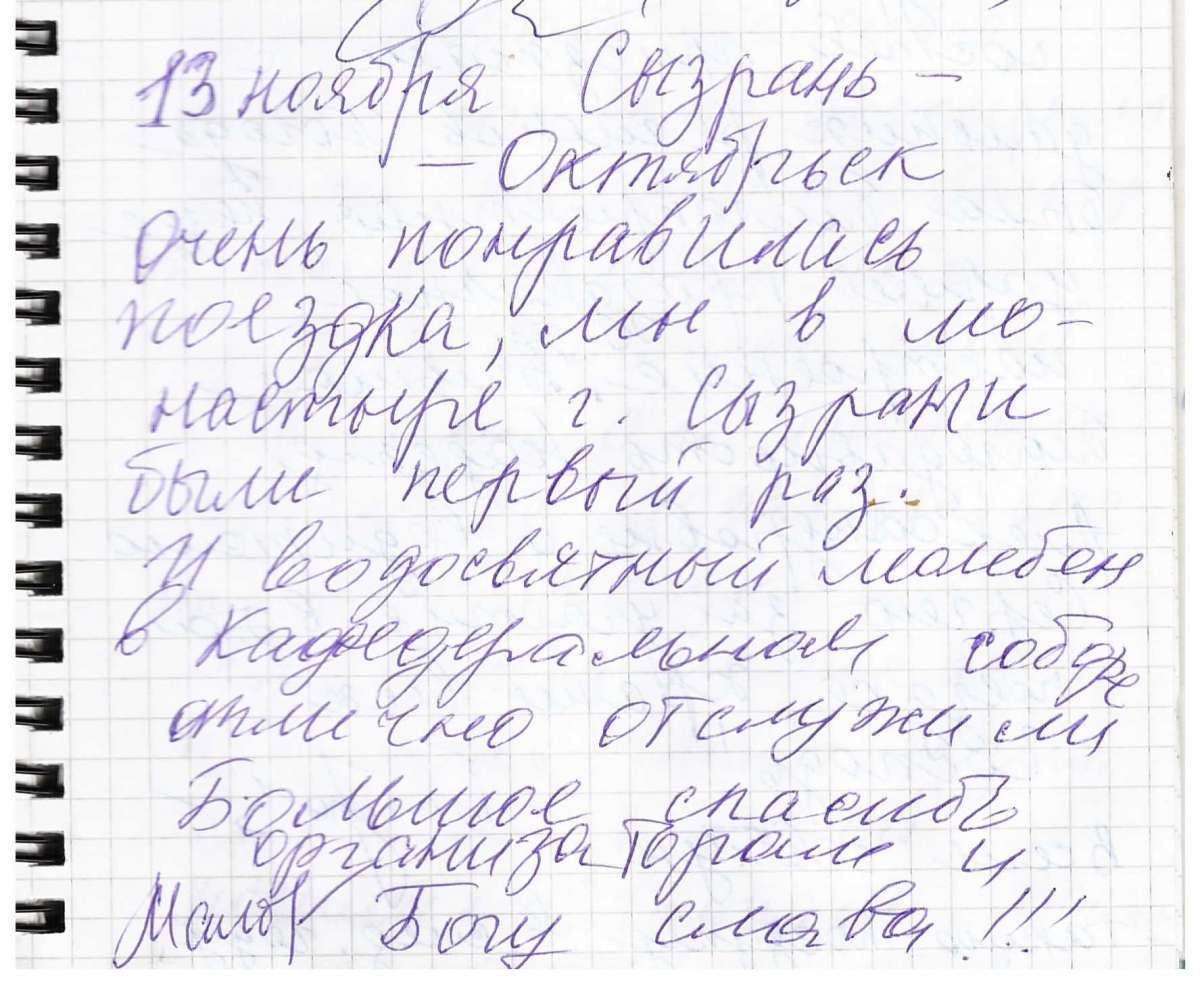 13 ноября Сызрань –
– Октябрьск
очень понравилась
поездка, мы в мо-
настыре г. Сызрани
были первый раз.
И водосвятный молебен
в Кафедральном соборе
отлично отслужили
Большое спасибо
организаторам и
Богу слава!!!